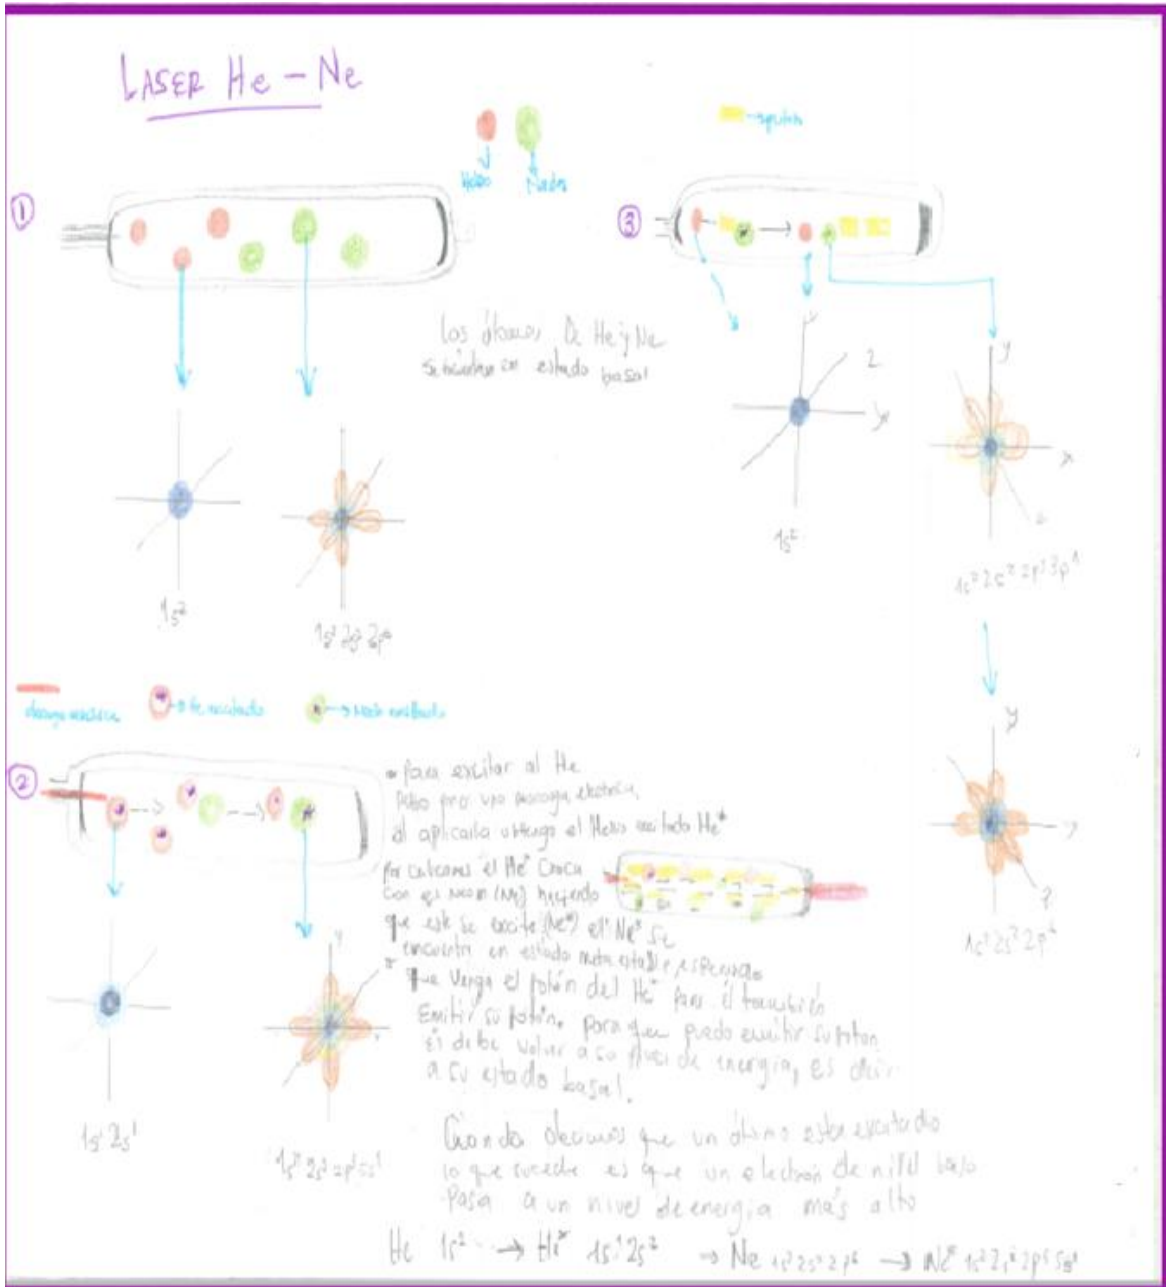 LASER He - Ne
Helio
①
Los átomos De He y Ne
se en estado basal
1s²
1s² 2s² 2p⁶
③
z
1s²
y
x
1s² 2s² 2p⁵ 3p¹
y
z
1s² 2s² 2p⁶
descarga eléctrica
→ He excitado
→ Neón excitado
②
Para excitar al He
una descarga eléctrica
al aplicarla obtengo el Helio excitado He*
el He* choca
con el neón (Ne) haciendo
que este se excite (Ne*) el Ne* se
encuentra en estado meta estable esperando
que venga el fotón del He* para él también
Emitir su fotón. para que pueda emitir su fotón
él debe volver a su nivel de energía, es decir
a su estado basal.
1s¹ 2s¹
y
1s² 2s² 2p⁵ 5s¹
Cuando decimos que un átomo esta excitado
lo que sucede es que un electrón de nivel bajo
Pasa a un nivel de energía más alto
He 1s² → He* 1s¹ 2s² → Ne 1s² 2s² 2p⁶ → Ne* 1s² 2s² 2p⁵ 5s¹